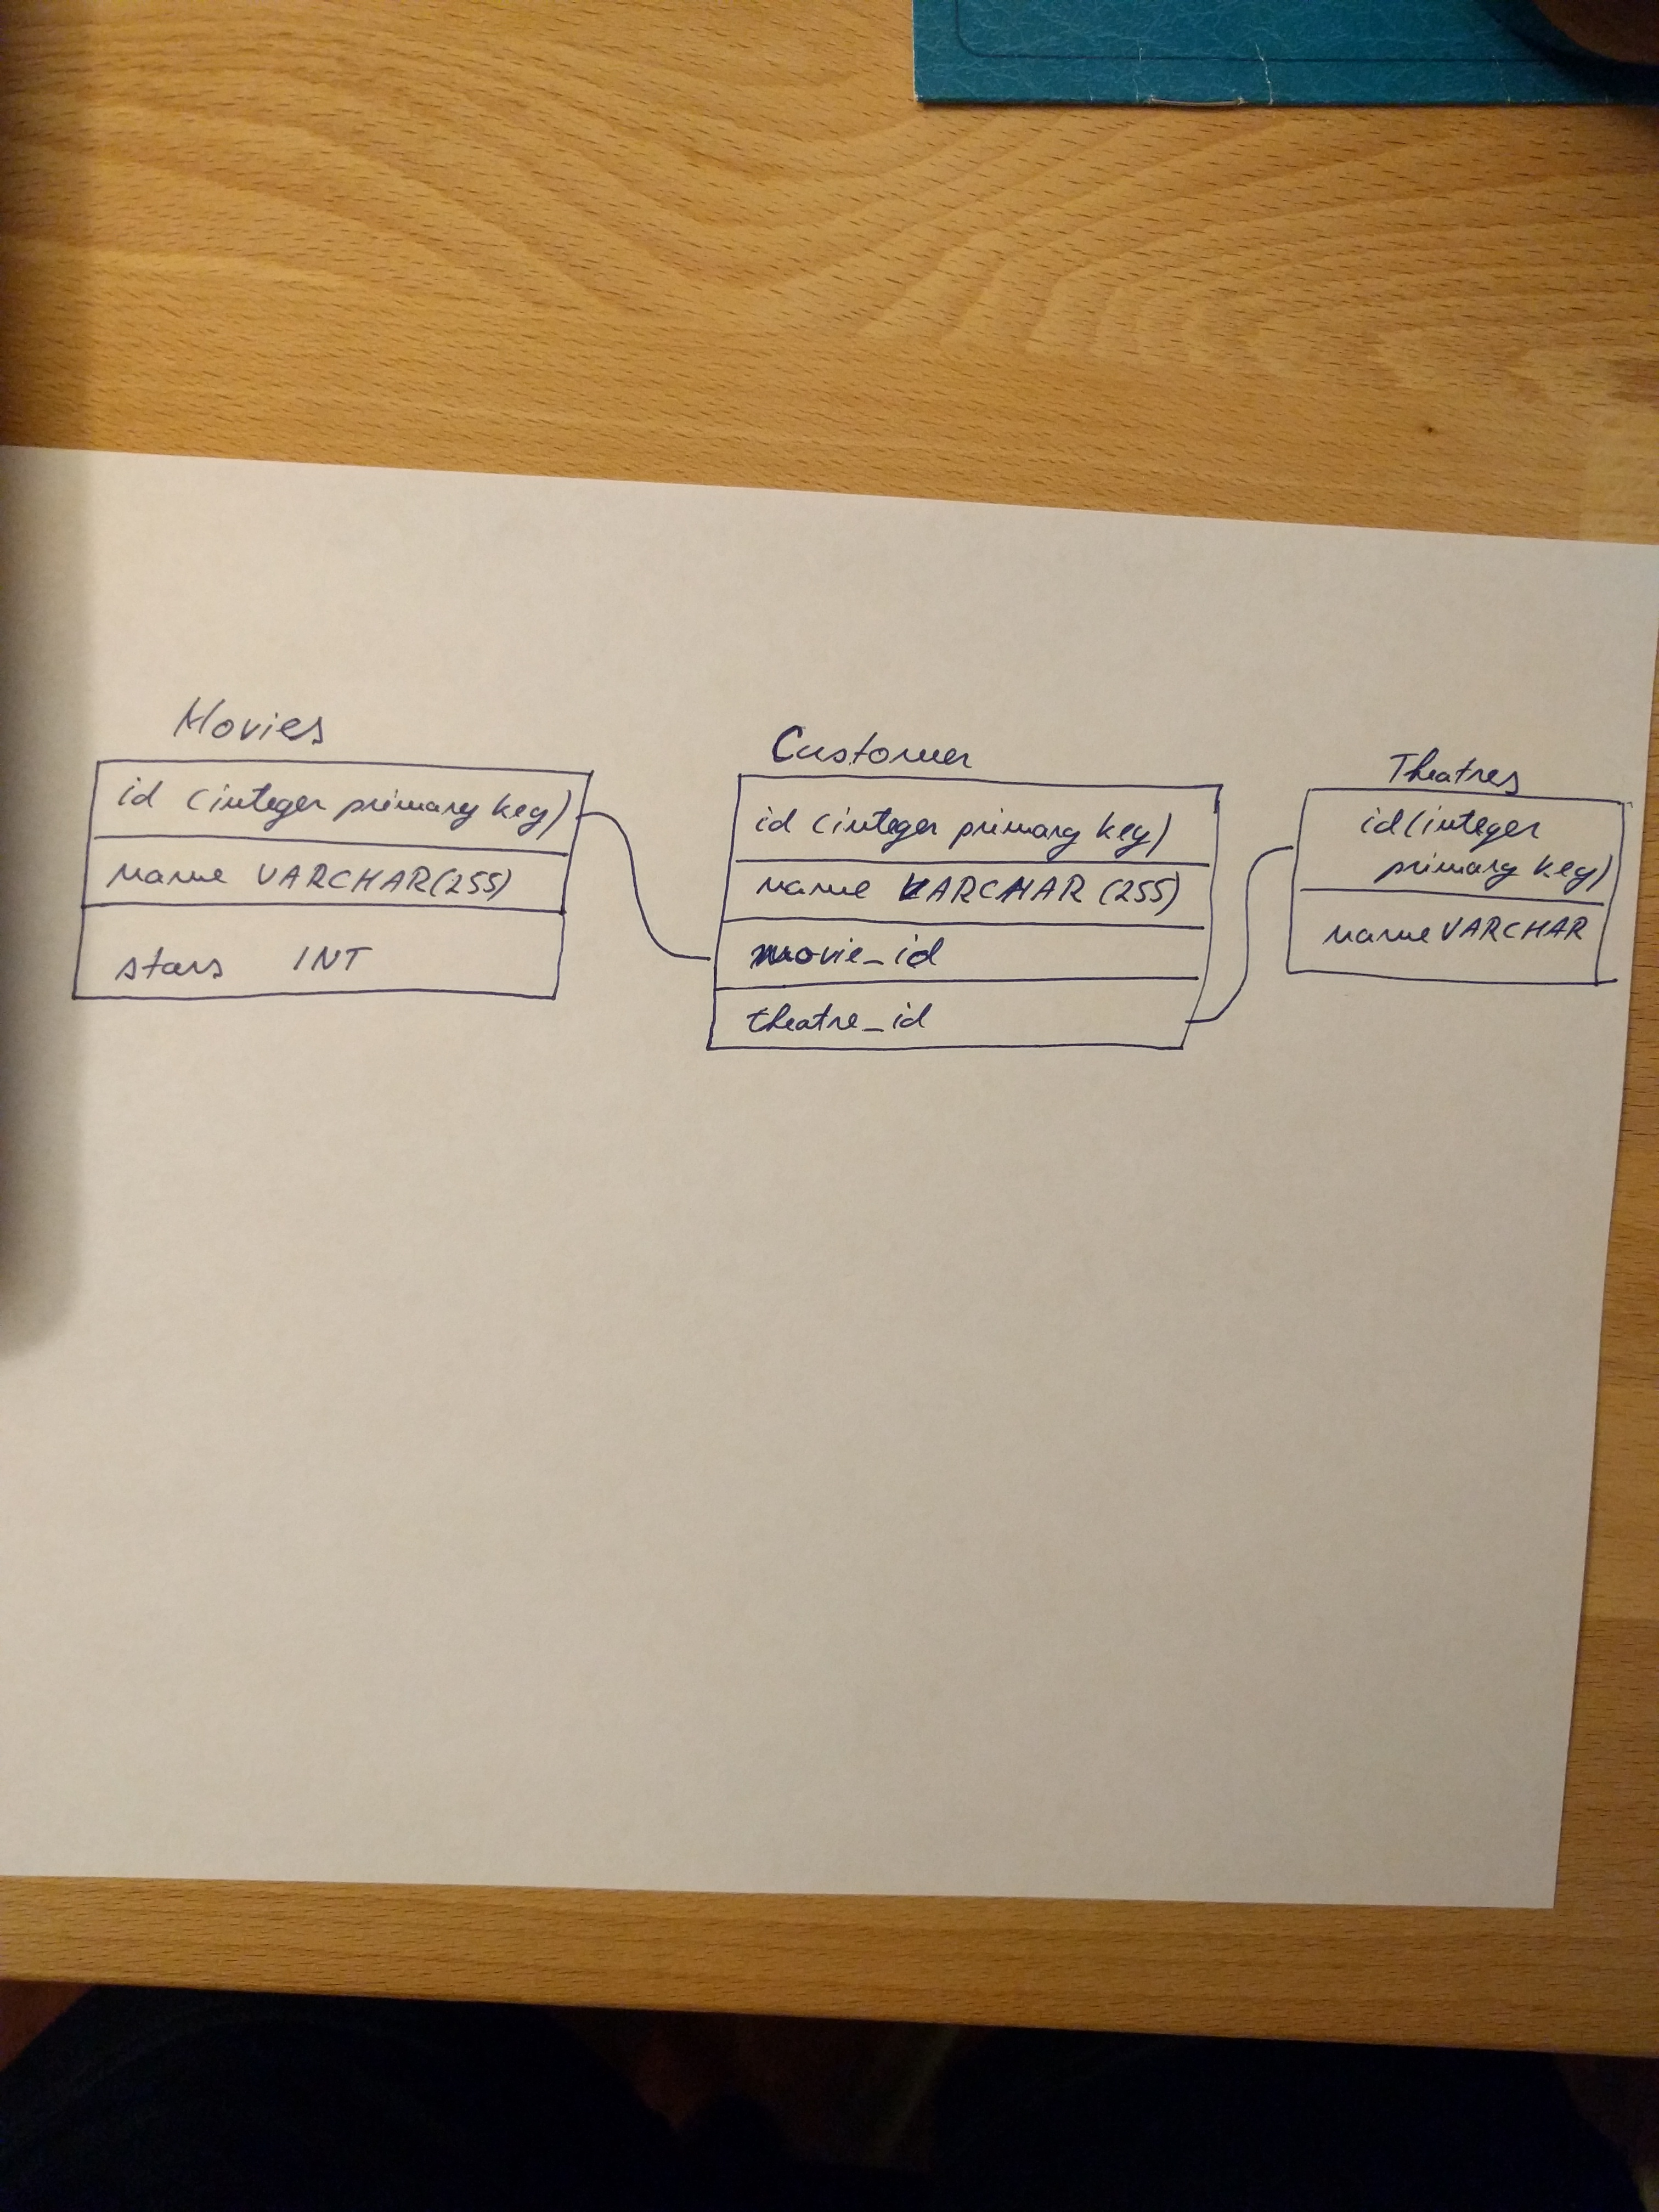 Movies
id (integer primary key)
name VARCHAR(255)
stars INT
Customer
id (integer primary key)
name VARCHAR (255)
movie_id
theatre_id
Theatres
id (integer
primary key)
name VARCHAR